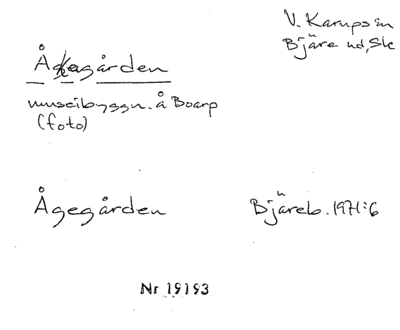 V. Karups sn
Bjäre hd, Sk
Åkagården
museibyggn. å Boarp
(foto)
Ågegården Bjäreb. 1971:6
Nr 19193